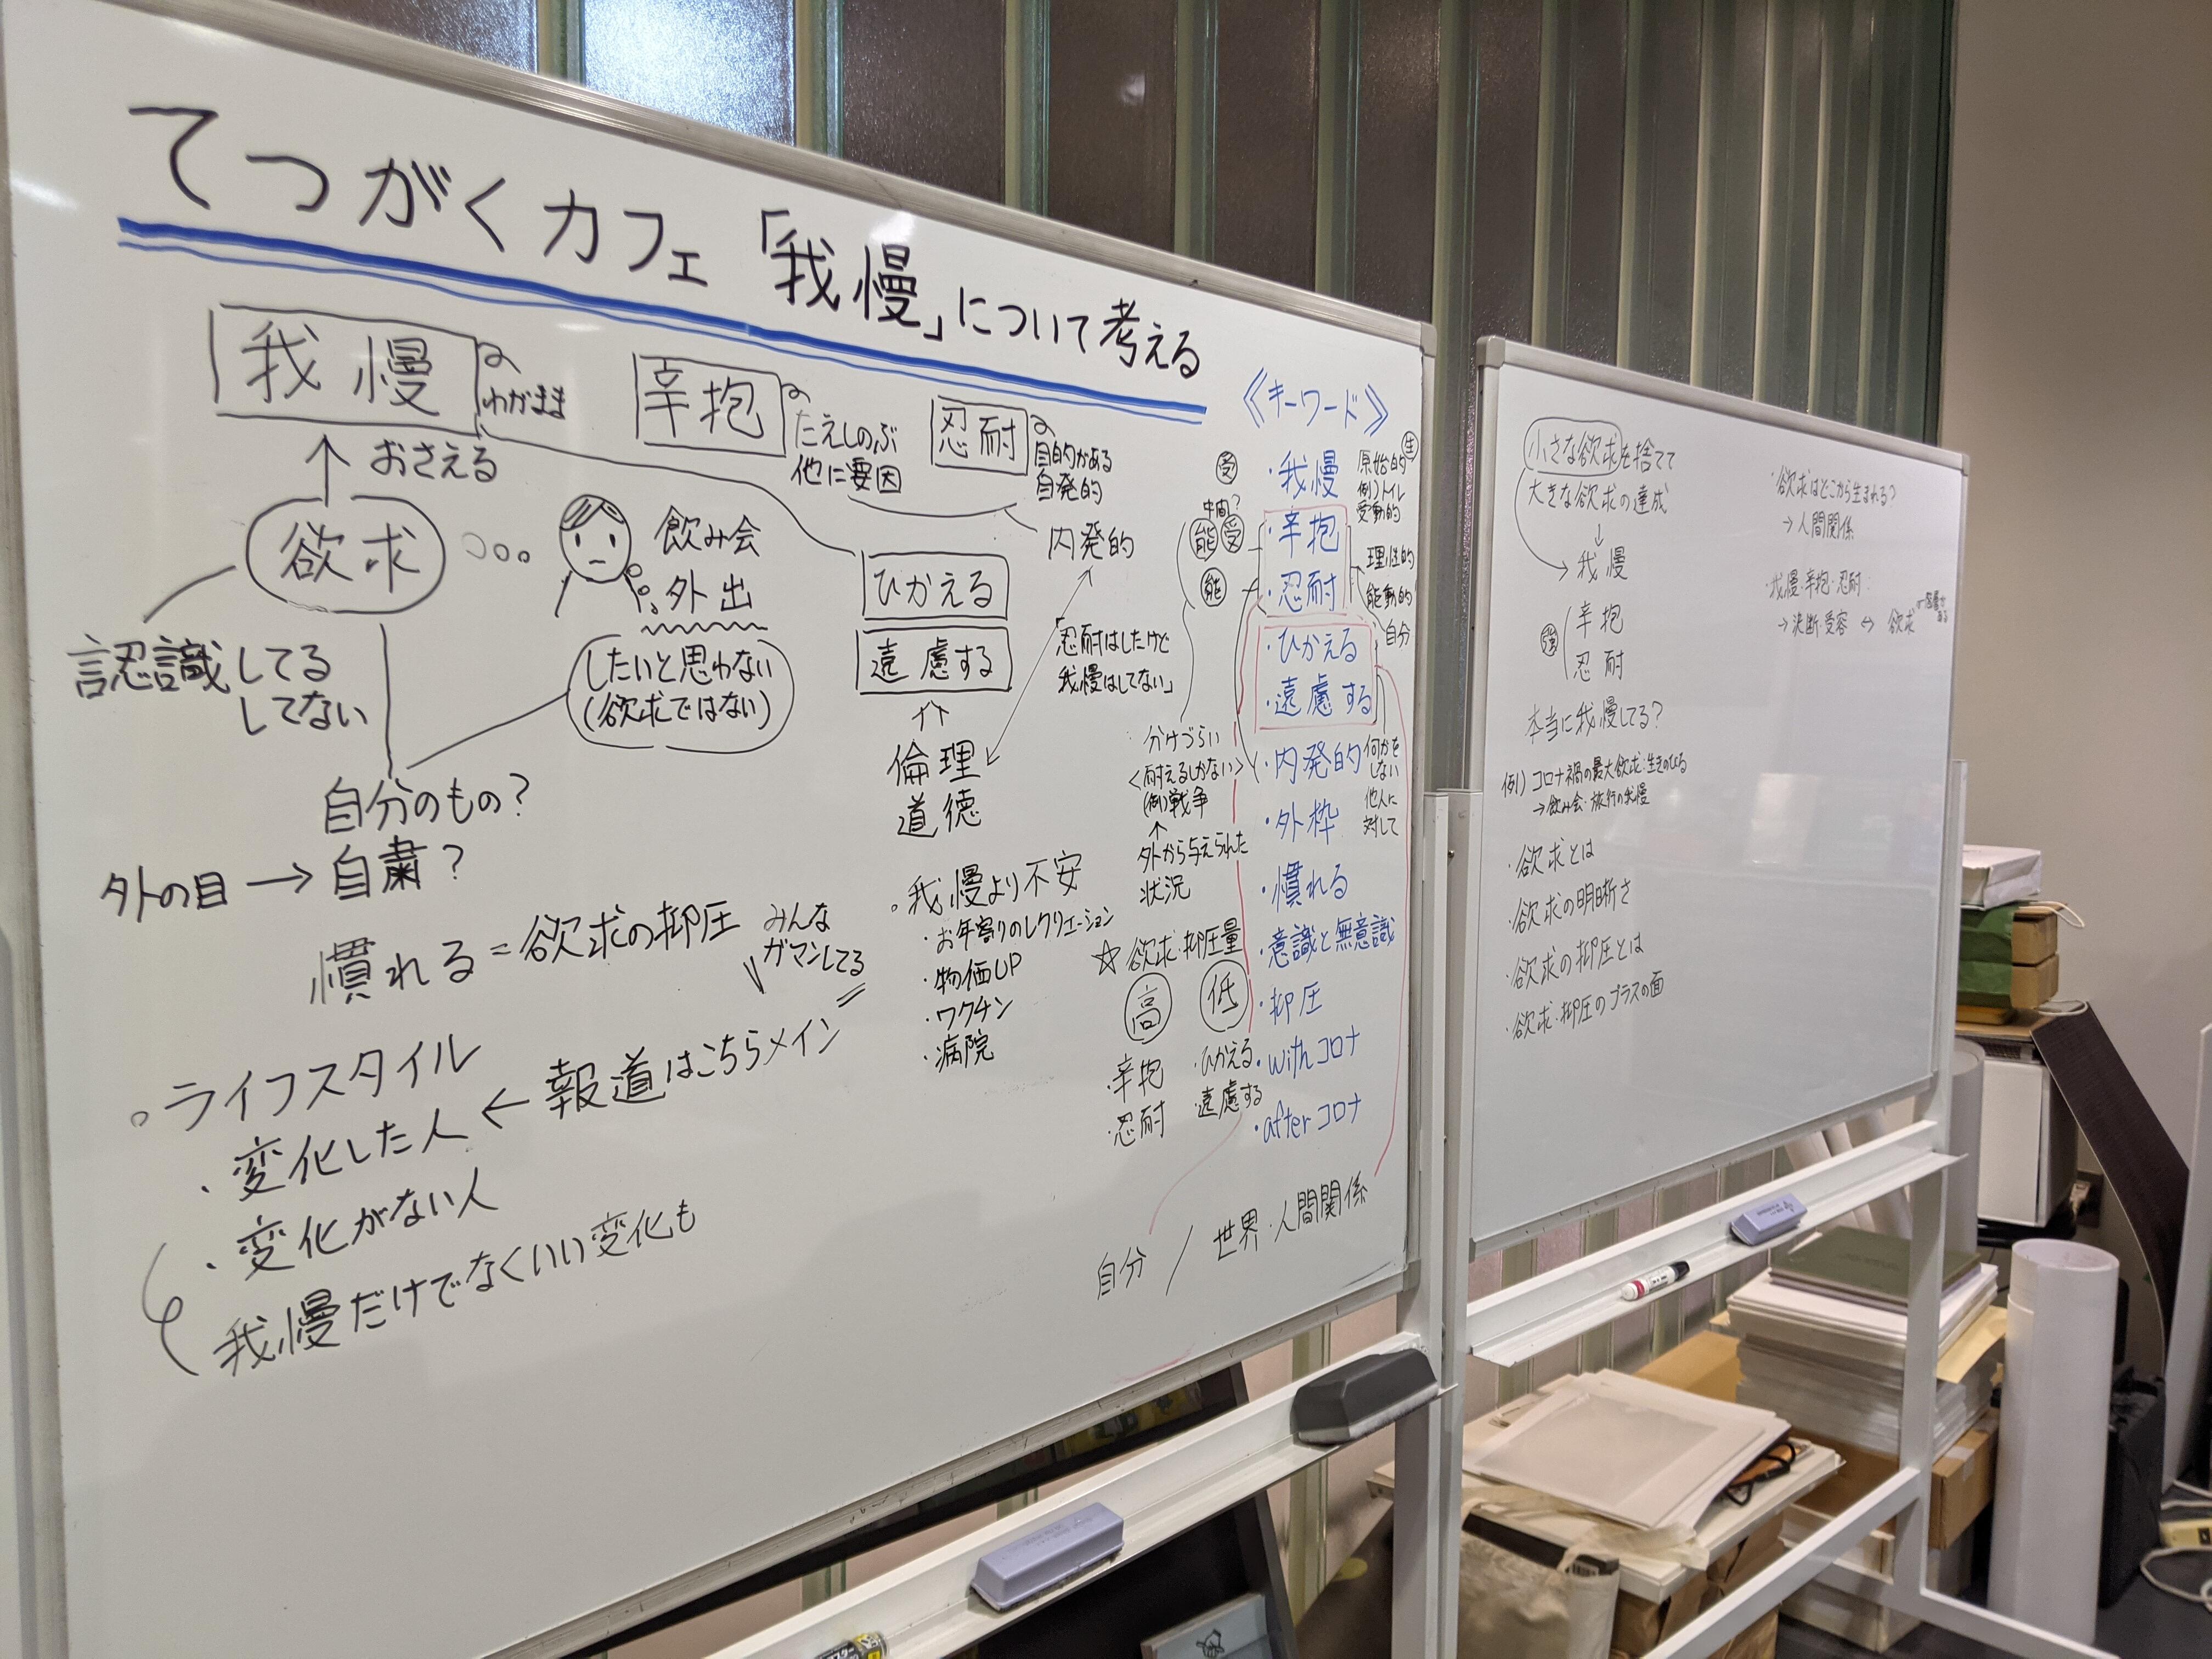 てつがくカフェ「我慢」について考える
我慢
わがまま
おさえる
欲求
飲み会
外出
認識してる
してない
したいと思わない
(欲求ではない)
自分のもの?
外の目→自粛?
慣れる=欲求の抑圧
みんな
ガマンしてる
。ライフスタイル
・変化した人←報道はこちらメイン
・変化がない人
我慢だけでなくいい変化も
辛抱
たえしのぶ
他に要因
忍耐
目的がある
自発的
内発的
ひかえる
遠慮する
忍耐はしたけど
我慢はしてない」
倫理
道徳
。我慢より不安
・お年寄りのレクリエーション
・物価UP
・ワクチン
・病院
分けづらい
<耐えるしかない>
(例)戦争
↑
外から与えられた
状況
☆欲求・抑圧量
高
・辛抱
・忍耐
低
・ひかえる
・遠慮する
《キーワード》
受
・我慢
原始的
生
例)トイレ
受動的
中間?
能 受
・辛抱
理性的
能
・忍耐
能動的
自分
・ひかえる
・遠慮する
・内発的
何かを
しない
・外枠
他人に
対して
・慣れる
・意識と無意識
・抑圧
・withコロナ
・afterコロナ
自分/世界・人間関係
小さな欲求を捨てて
大きな欲求の達成
↓
我慢
強
辛抱
忍耐
本当に我慢してる?
例)コロナ禍の最大欲求:生きのびる
→飲み会・旅行の我慢
・欲求とは
・欲求の明晰さ
・欲求の抑圧とは
・欲求・抑圧のプラスの面
・欲求はどこから生まれる?
→人間関係
・我慢・辛抱・忍耐:
→決断・受容↔欲求